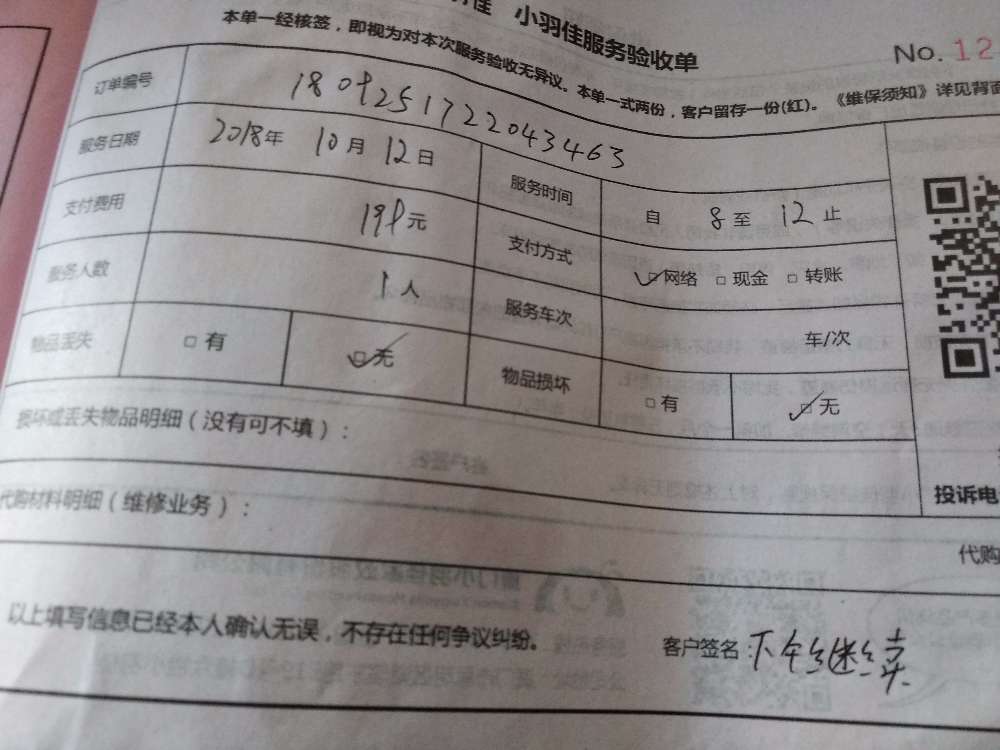 小羽佳服务验收单
No. 12
本单一经核签，即视为对本次服务验收无异议。本单一式两份，客户留存一份(红)。《维保须知》详见背面
订单编号 1809251722043463
服务日期 2018年 10月 12日 服务时间 自 8 至 12 止
支付费用 199元 支付方式 网络 现金 转账
服务人数 1人 服务车次 车/次
物品丢失 有 无 物品损坏 有 无
损坏或丢失物品明细（没有可不填）：
投诉电
代购材料明细（维修业务）：
代购
以上填写信息已经本人确认无误，不存在任何争议纠纷。
客户签名：下午继续